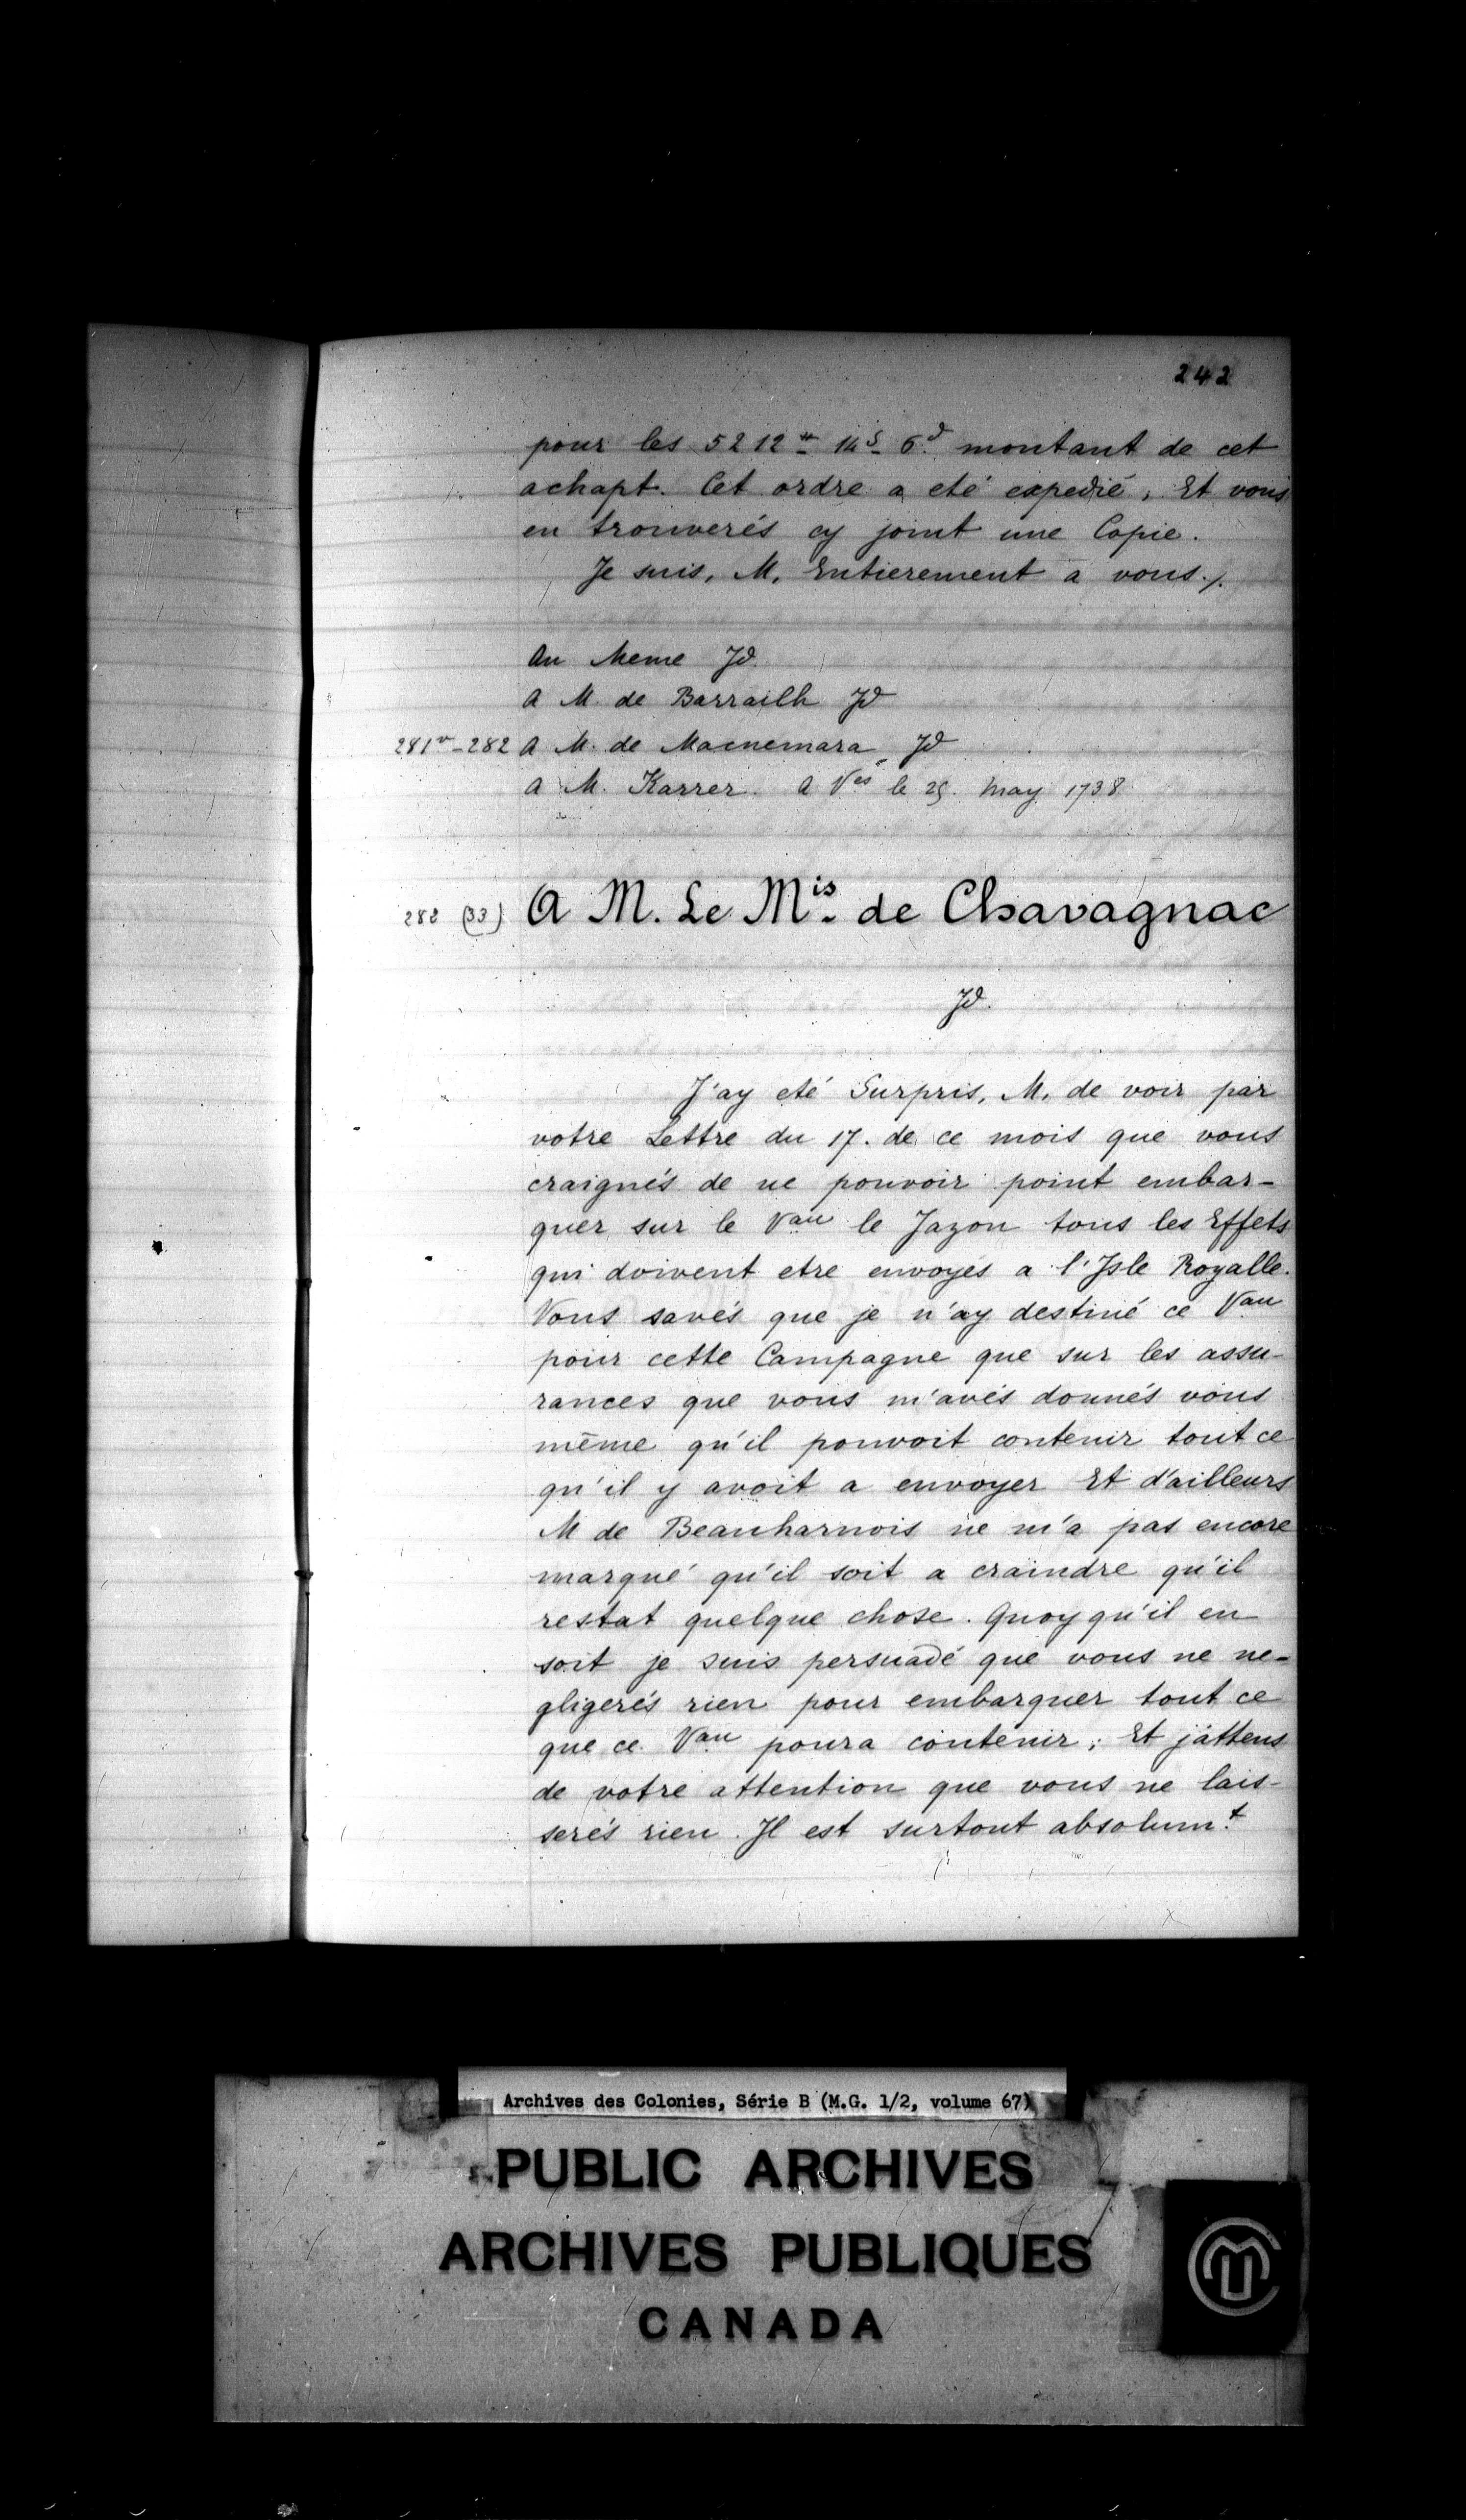 242
pour les 5212# 14s 6d montant de cet
achapt. Cet ordre a eté expedié, Et vous
en trouverés cy joint une Copie.
Je suis, M, Entierement a vous./.
Au Meme Jd.
A M. de Barrailh Jd
281vo-282 A M. de Macnemara Jd
A M. Karrer. A Ves le 25. May 1738
282 (33) A M. Le Mis de Chavagnac
Jd.
J'ay eté Surpris, M, de voir par
votre Lettre du 17. de ce mois que vous
craignés de ne pouvoir point embar-
quer sur le Vau le Jazon tous les Effets
qui doivent etre envoyés a l'Isle Royalle.
Vous savés que je n'ay destiné ce Vau
pour cette Campagne que sur les assu-
rances que vous m'avés donnés vous
même qu'il pouvoit contenir tout ce
qu'il y avoit a envoyer Et d'ailleurs
M de Beauharnois ne m'a pas encore
marqué qu'il soit a craindre qu'il
restat quelque chose. Quoy qu'il en
soit je suis persuadé que vous ne ne-
gligerés rien pour embarquer tout ce
que ce Vau poura contenir; Et j'attens
de votre attention que vous ne lais-
serés rien. Il est surtout absolumt
Archives des Colonies, Série B (M.G. 1/2, volume 67)
PUBLIC ARCHIVES
ARCHIVES PUBLIQUES
CANADA